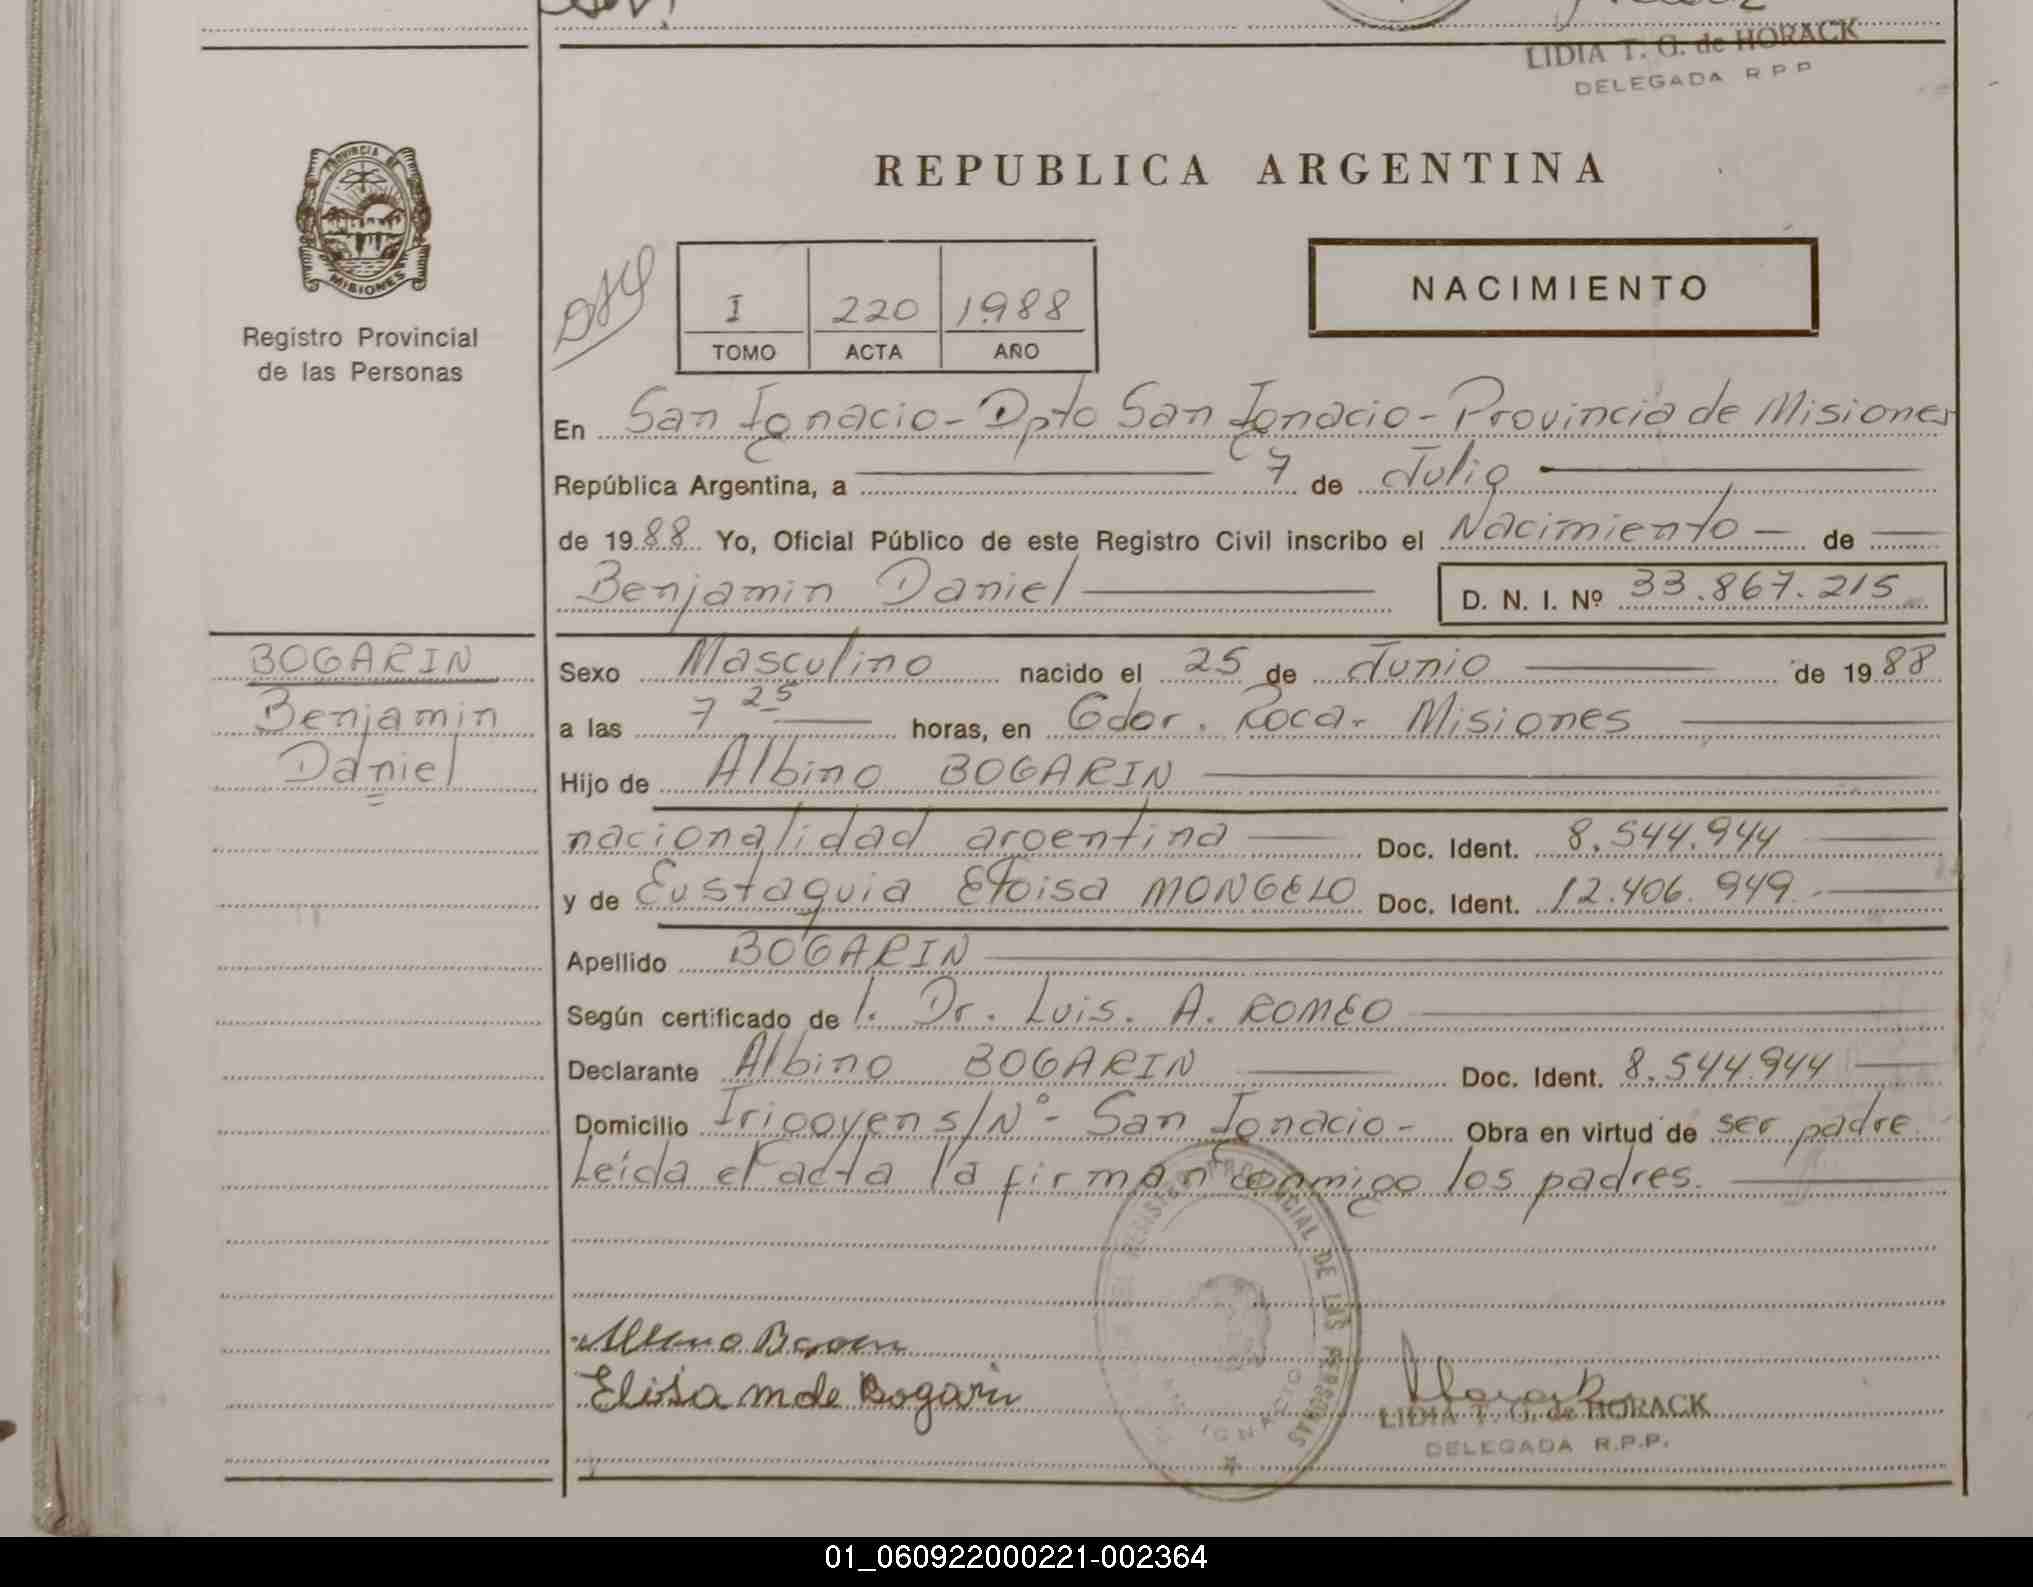 LIDIA T. G. de HORACK
DELEGADA R P P
PROVINCIA DE
MISIONES
Registro Provincial
de las Personas
REPUBLICA ARGENTINA
NACIMIENTO
I 220 1988
TOMO ACTA AÑO
En San Ignacio - Dpto San Ignacio - Provincia de Misiones
República Argentina, a 7 de Julio
de 1988 Yo, Oficial Público de este Registro Civil inscribo el Nacimiento - de
Benjamin Daniel D. N. I. Nº 33.867.215
BOGARIN
Benjamin
Daniel
Sexo Masculino nacido el 25 de Junio de 1988
a las 7 25 horas, en Gdor. Roca - Misiones
Hijo de Albino BOGARIN
nacionalidad argentina Doc. Ident. 8.544.944
y de Eustaquia Eloisa MONGELO Doc. Ident. 12.406.949.-
Apellido BOGARIN
Según certificado de l. Dr. Luis. A. ROMEO
Declarante Albino BOGARIN Doc. Ident. 8.544.944
Domicilio Irigoyen s/Nº - San Ignacio - Obra en virtud de ser padre
Leída el acta la firman conmigo los padres.
REGISTRO PROVINCIAL DE LAS PERSONAS
SAN IGNACIO
Elisa m de Bogarin
LIDIA T. G. de HORACK
DELEGADA R.P.P.
01_060922000221-002364